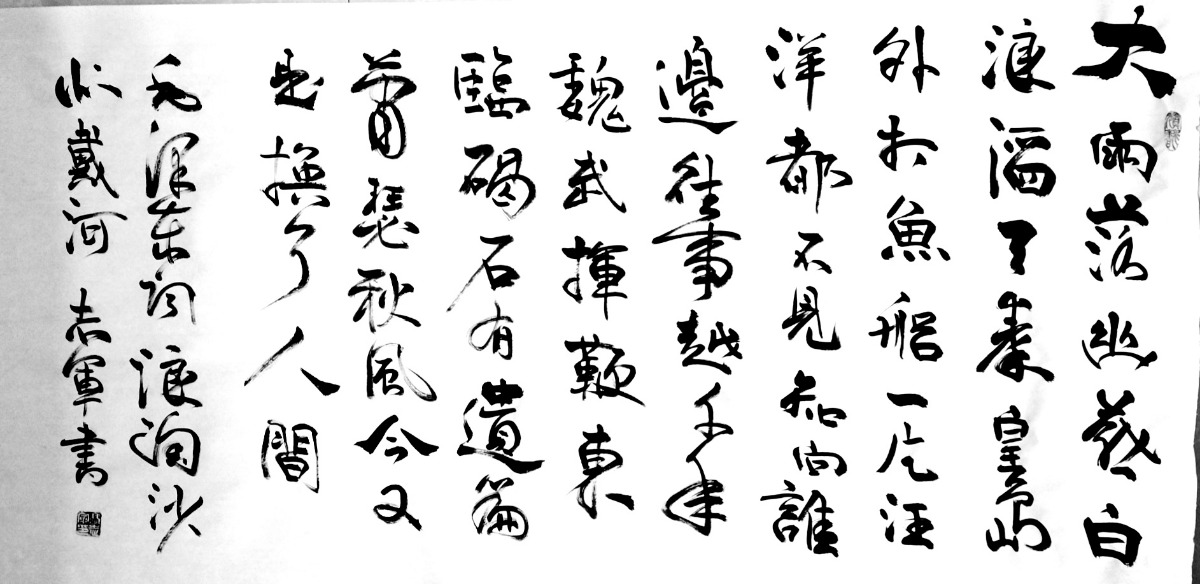 大雨落幽燕白
浪滔天秦皇島
外打魚船一片汪
洋都不見知向誰
邊往事越千年
魏武揮鞭東
臨碣石有遺篇
蕭瑟秋風今又
是換了人間
毛澤東詞浪淘沙
北戴河 志軍書